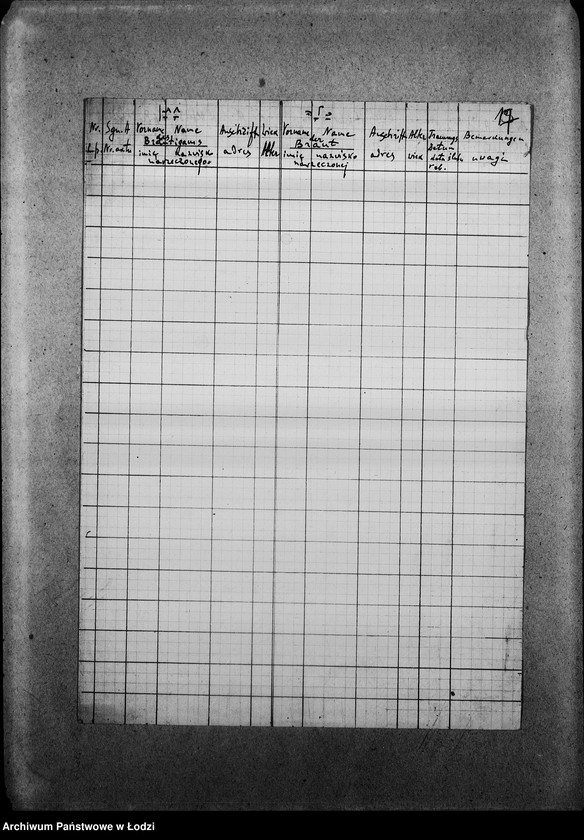 Nr. Sgn. A Vorname Name Anschrift wiek Vorname Name Anschrift Alter Trauungs Bemerkungen
des der Datum
Bräutigams Braut
L.p. Nr. aktu imię nazwisko adres Alter imię nazwisko adres wiek data ślubu uwagi
narzeczonego narzeczonej rel.
Archiwum Państwowe w Łodzi